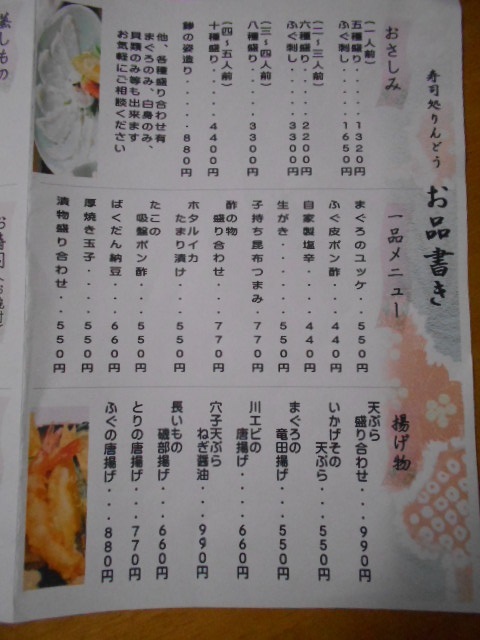 寿司処りんどう
お品書き
おさしみ
(一人前)
五種盛り・・・・1320円
ふぐ刺し・・・・・1650円
(二～三人前)
六種盛り・・・・2200円
ふぐ刺し・・・・3300円
(三～四人前)
八種盛り・・・・3300円
(四～五人前)
十種盛り・・・・4400円
鯵の姿造り・・・・・880円
他、各種盛り合わせ有
まぐろのみ、白身のみ、
貝類のみ等も出来ます
お気軽にご相談ください
一品メニュー
まぐろのユッケ・・・550円
ふぐ皮ポン酢・・・440円
自家製塩辛・・・440円
生がき・・・・・550円
子持ち昆布つまみ・770円
酢の物
盛り合わせ・・・770円
ホタルイカ
たまり漬け・・・550円
たこの
吸盤ポン酢・・・550円
ばくだん納豆・・・660円
厚焼き玉子・・・・550円
漬物盛り合わせ・・・550円
揚げ物
天ぷら
盛り合わせ・・・990円
いかげその
天ぷら・・・550円
まぐろの
竜田揚げ・・・550円
川エビの
唐揚げ・・・660円
穴子天ぷら
ねぎ醤油・・・990円
長いもの
磯部揚げ・・・660円
とりの唐揚げ・・・770円
ふぐの唐揚げ・・・880円
蒸しもの